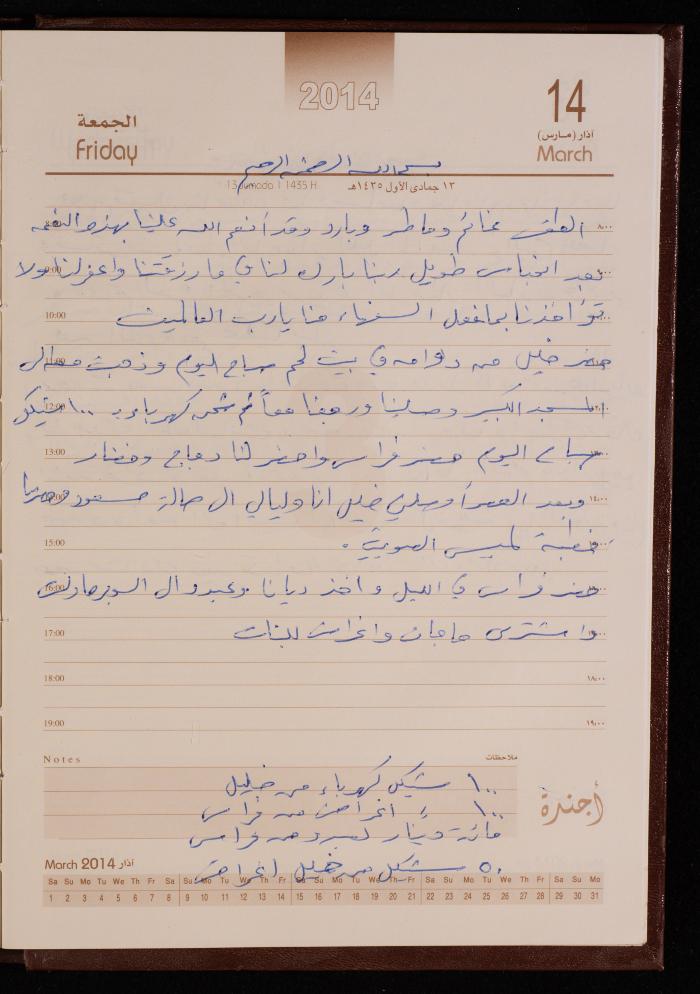 2014
14
الجمعة
آذار (مارس)
Friday
March
بسم الله الرحمن الرحيم
13 Jumada I 1435 H.
١٣ جمادى الأول ١٤٣٥هـ
الطقس غائم وماطر وبارد وقد أنعم الله علينا بهذه النعمة
بعد انحباس طويل ربنا بارك لنا في ما رزقتنا واغفر لنا ولا
تؤاخذنا بما فعل السفهاء منا يا رب العالمين
حضر خليل من دوامه في بيت لحم صباح اليوم وذهبت معه الى
المسجد الكبير وصلينا ورجعنا معاً ثم شحن كهرباء بـ ١٠٠ شيكل
صباح اليوم حضر فراس واحضر لنا دجاج وخضار
وبعد العصر أوصلني خليل انا وليالي الى صالة مسعود وحضرنا
خطبة لميس
حضر فراس في الليل واخذ ديانا وعبدو الى السوبرماركت
واشترى حاجات واغراض للبنات
8:00 ٨:٠٠
9:00 ٩:٠٠
10:00 ١٠:٠٠
11:00 ١١:٠٠
12:00 ١٢:٠٠
13:00 ١٣:٠٠
14:00 ١٤:٠٠
15:00 ١٥:٠٠
16:00 ١٦:٠٠
17:00 ١٧:٠٠
18:00 ١٨:٠٠
19:00 ١٩:٠٠
Notes
ملاحظات
١٠٠ شيكل كهرباء من خليل
١٠٠ = اغراض من فراس
مائة دينار من فراس
٥٠ شيكل من خليل اغراض
أجندة
March 2014 آذار
Sa Su Mo Tu We Th Fr Sa Su Mo Tu We Th Fr Sa Su Mo Tu We Th Fr Sa Su Mo Tu We Th Fr Sa Su Mo
1 2 3 4 5 6 7 8 9 10 11 12 13 14 15 16 17 18 19 20 21 22 23 24 25 26 27 28 29 30 31